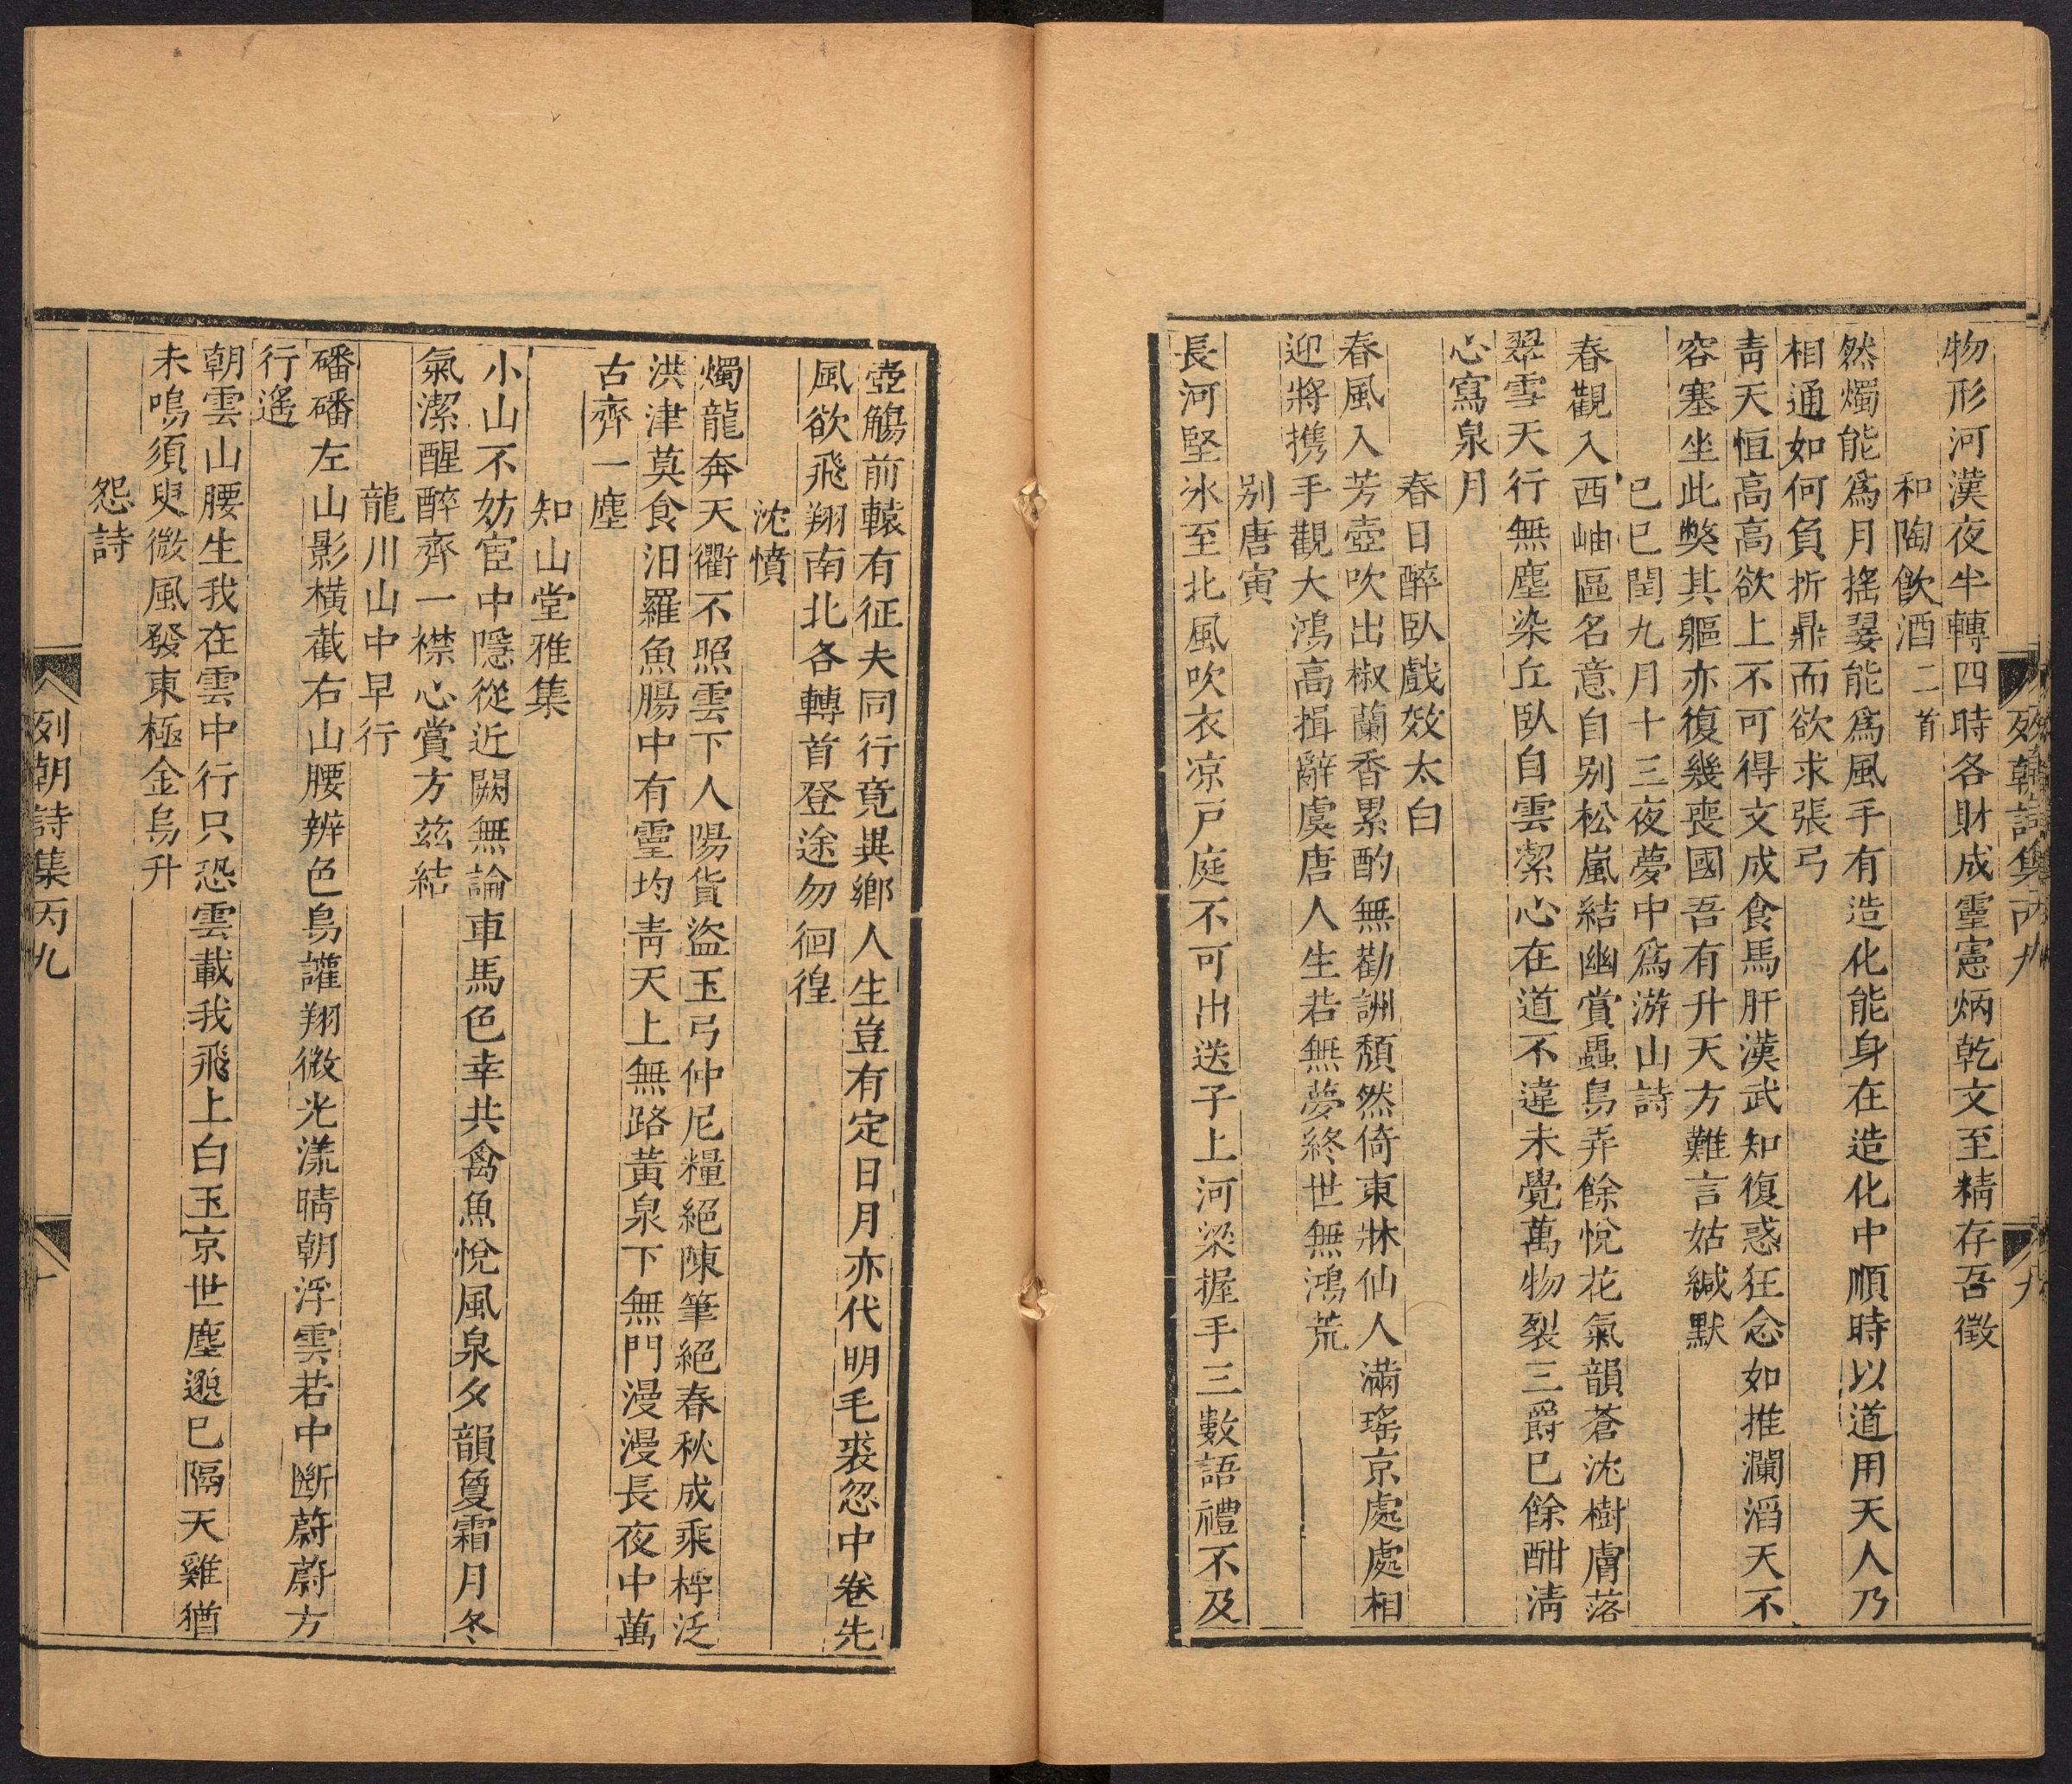 物形河漢夜半轉四時各財成靈憲炳乾文至精存吾徵
和陶飮酒二首
然燭能爲月揺翣能爲風手有造化能身在造化中順時以道用天人乃
相通如何負折鼎而欲求張弓
靑天恒高高欲上不可得文成食馬肝漢武知復惑狂念如推瀾滔天不
容塞坐此獘其軀亦復幾喪國吾有升天方難言姑緘默
已巳閏九月十三夜夢中爲游山詩
春觀入西岫區名意自别松嵐結幽賞蟲鳥弄餘悅花氣韻蒼沈樹膚落
翠雪天行無塵染丘臥自雲潔心在道不違未覺萬物裂三爵巳餘酣淸
心寫泉月
春日醉臥戲效太白
春風入芳壺吹出椒蘭香累酌無勸詶頽然倚東牀仙人滿瑤京處處相
迎將携手觀大鴻高揖辭虞唐人生若無夢終世無鴻荒
别唐寅
長河堅冰至北風吹衣凉戸庭不可出送子上河梁握手三數語禮不及
列朝詩集丙九
九
壺觴前轅有征夫同行竟異鄉人生豈有定日月亦代明毛裘忽中卷先
風欲飛翔南北各轉首登途勿徊徨
沈憤
燭龍奔天衢不照雲下人陽貨盜玉弓仲尼糧絕陳筆絕春秋成乘桴泛
洪津莫食汨羅魚腸中有靈均靑天上無路黃泉下無門漫漫長夜中萬
古齊一塵
知山堂雅集
小山不妨宦中隱從近闕無論車馬色幸共禽魚悅風泉夕韻夐霜月冬
氣潔醒醉齊一襟心賞方茲結
龍川山中早行
磻磻左山影橫截右山腰辨色鳥讙翔微光漾晴朝浮雲若中斷蔚蔚方
行遙
朝雲山腰生我在雲中行只恐雲載我飛上白玉京世塵邈巳隔天雞猶
未鳴須臾微風發東極金烏升
怨詩
列朝詩集丙九
十